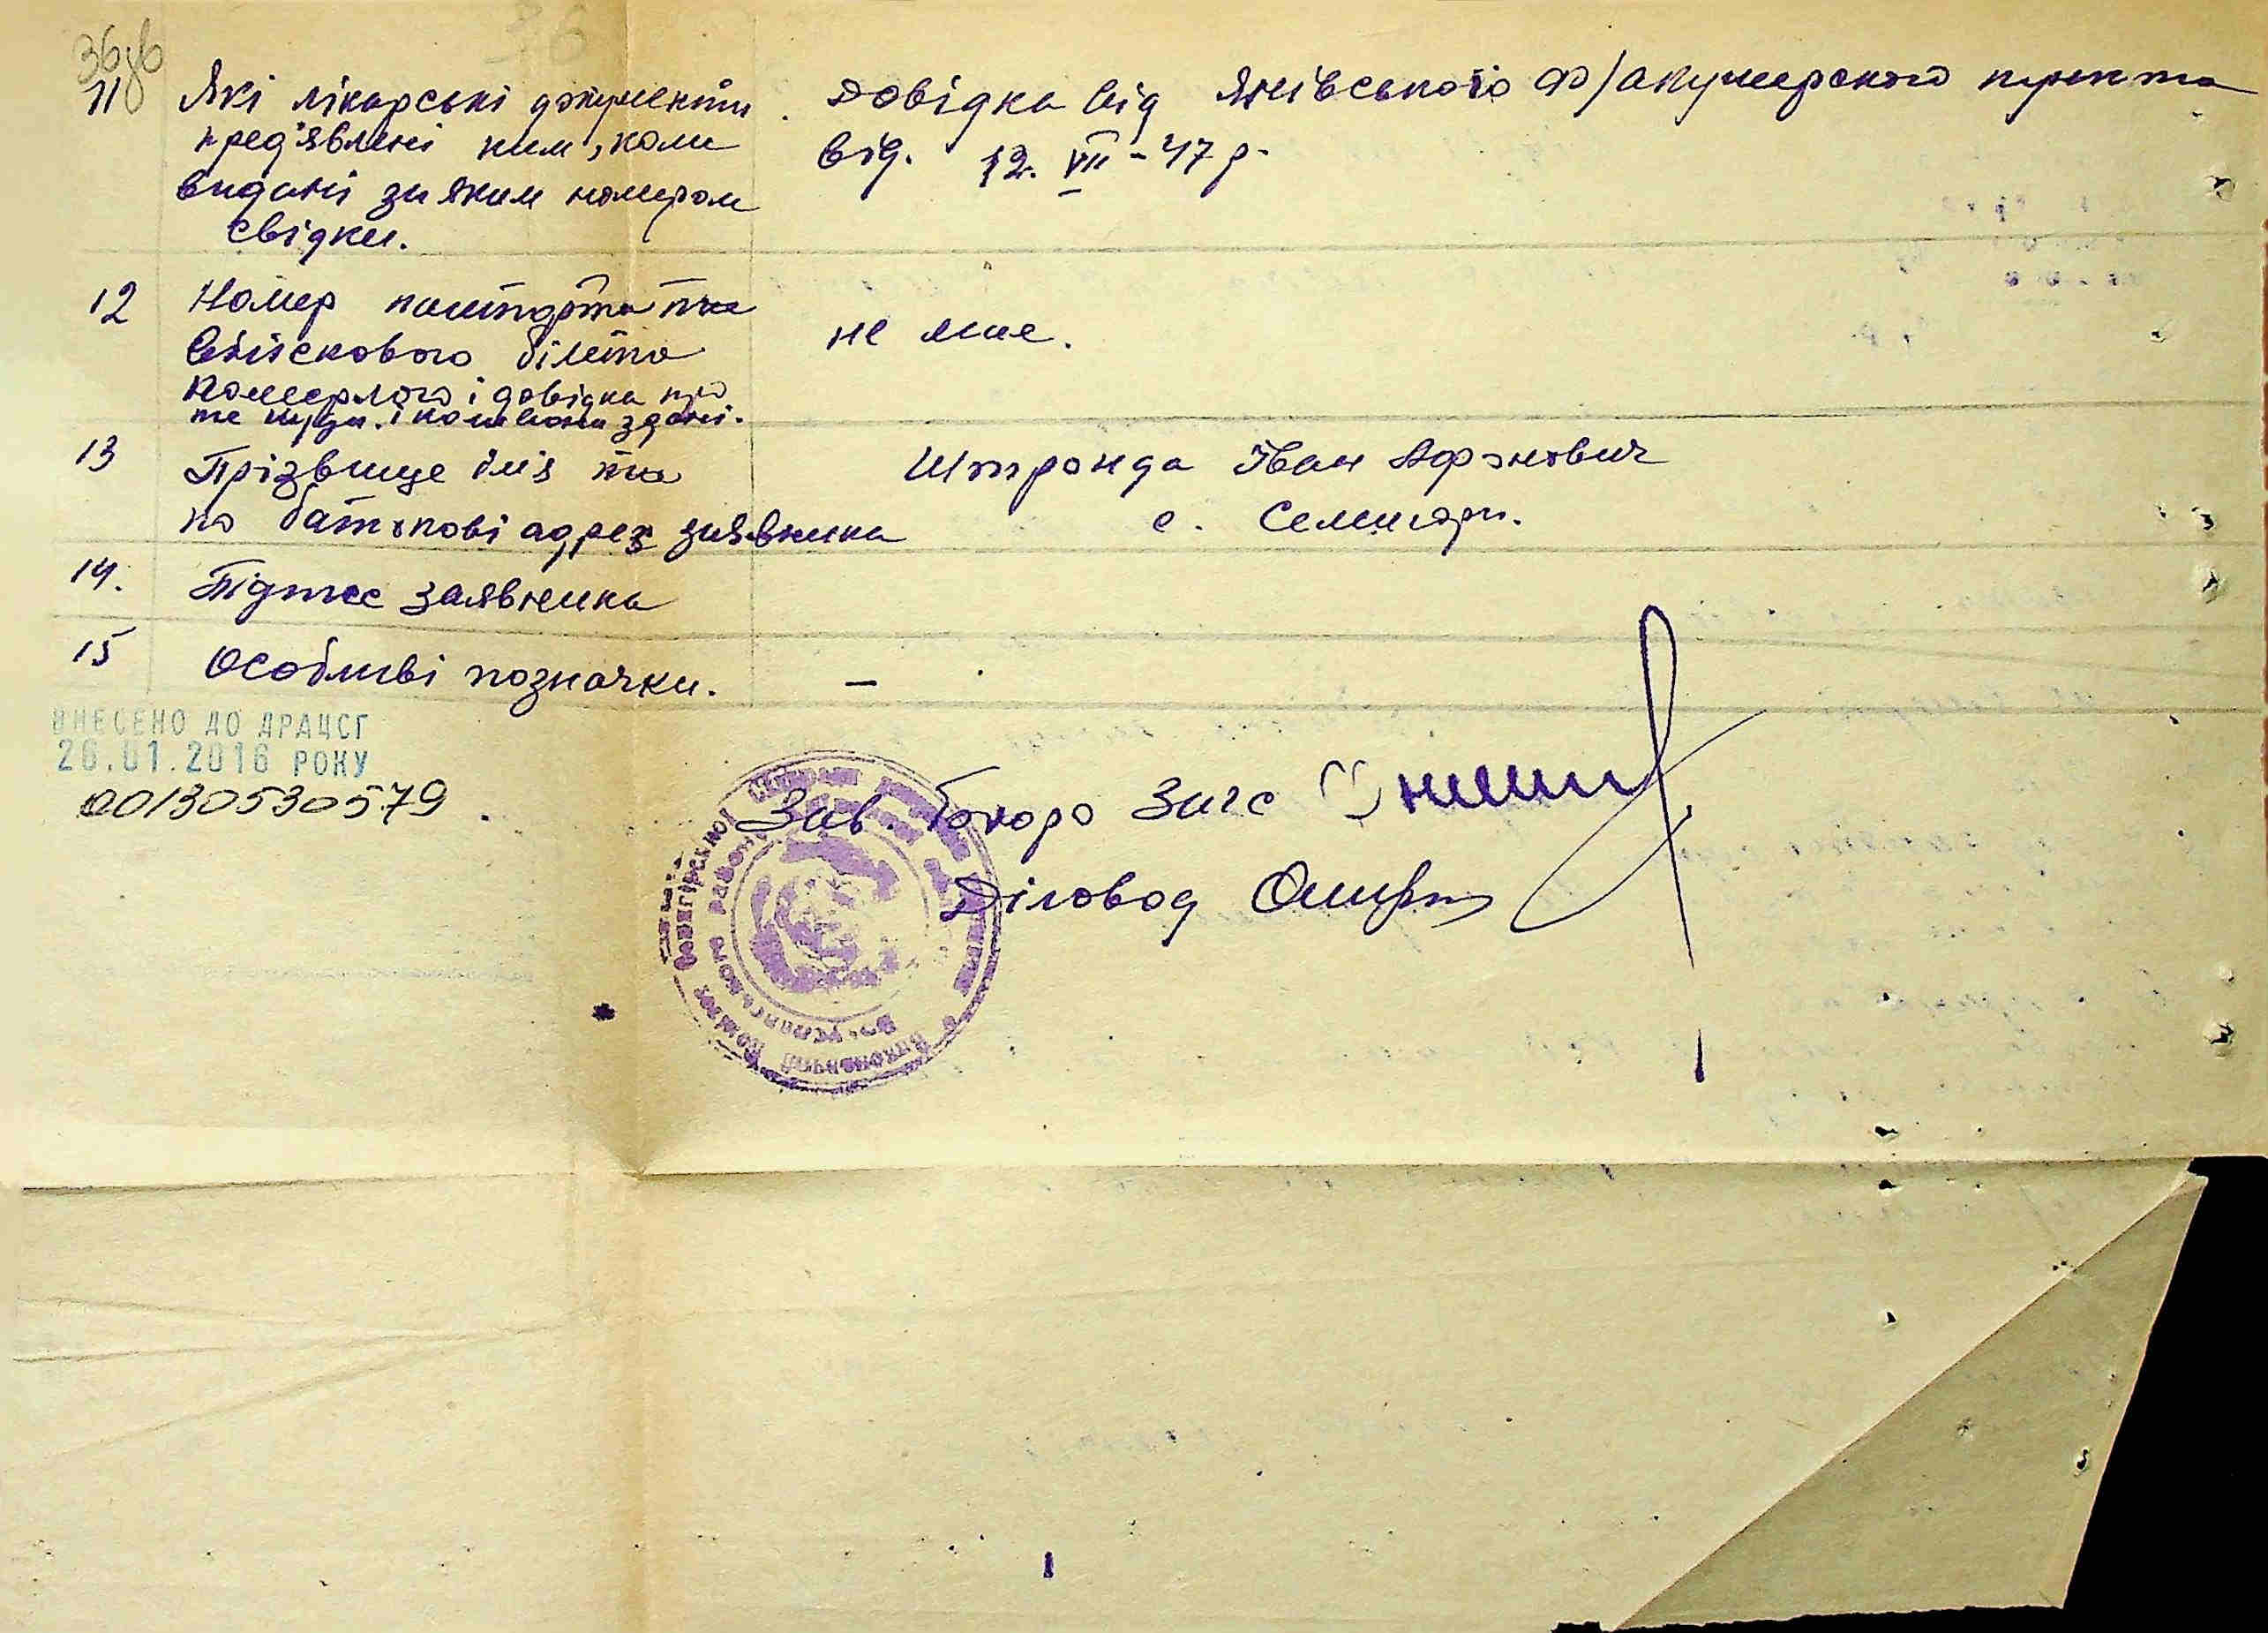 36
11 Які лікарські документи
пред'явлені ким, коли
видані за яким номером
свідки.
Довідка від Янівського ф/акушерского пункта
від. 12. VII - 47 р.
12 Номер пашпорта та
війскового білета
померлого і довідка про
те куди і коли вони здані.
не має.
13 Прізвище імя та
по батькові адрес заявника
Штронда Іван Афонович
с. Семияри.
14. Підпис заявника
15 Особливі позначки. –
ВНЕСЕНО ДО ДРАЦСГ
26.01.2016 РОКУ
00130530579
Зав. бюро Загс
Діловод